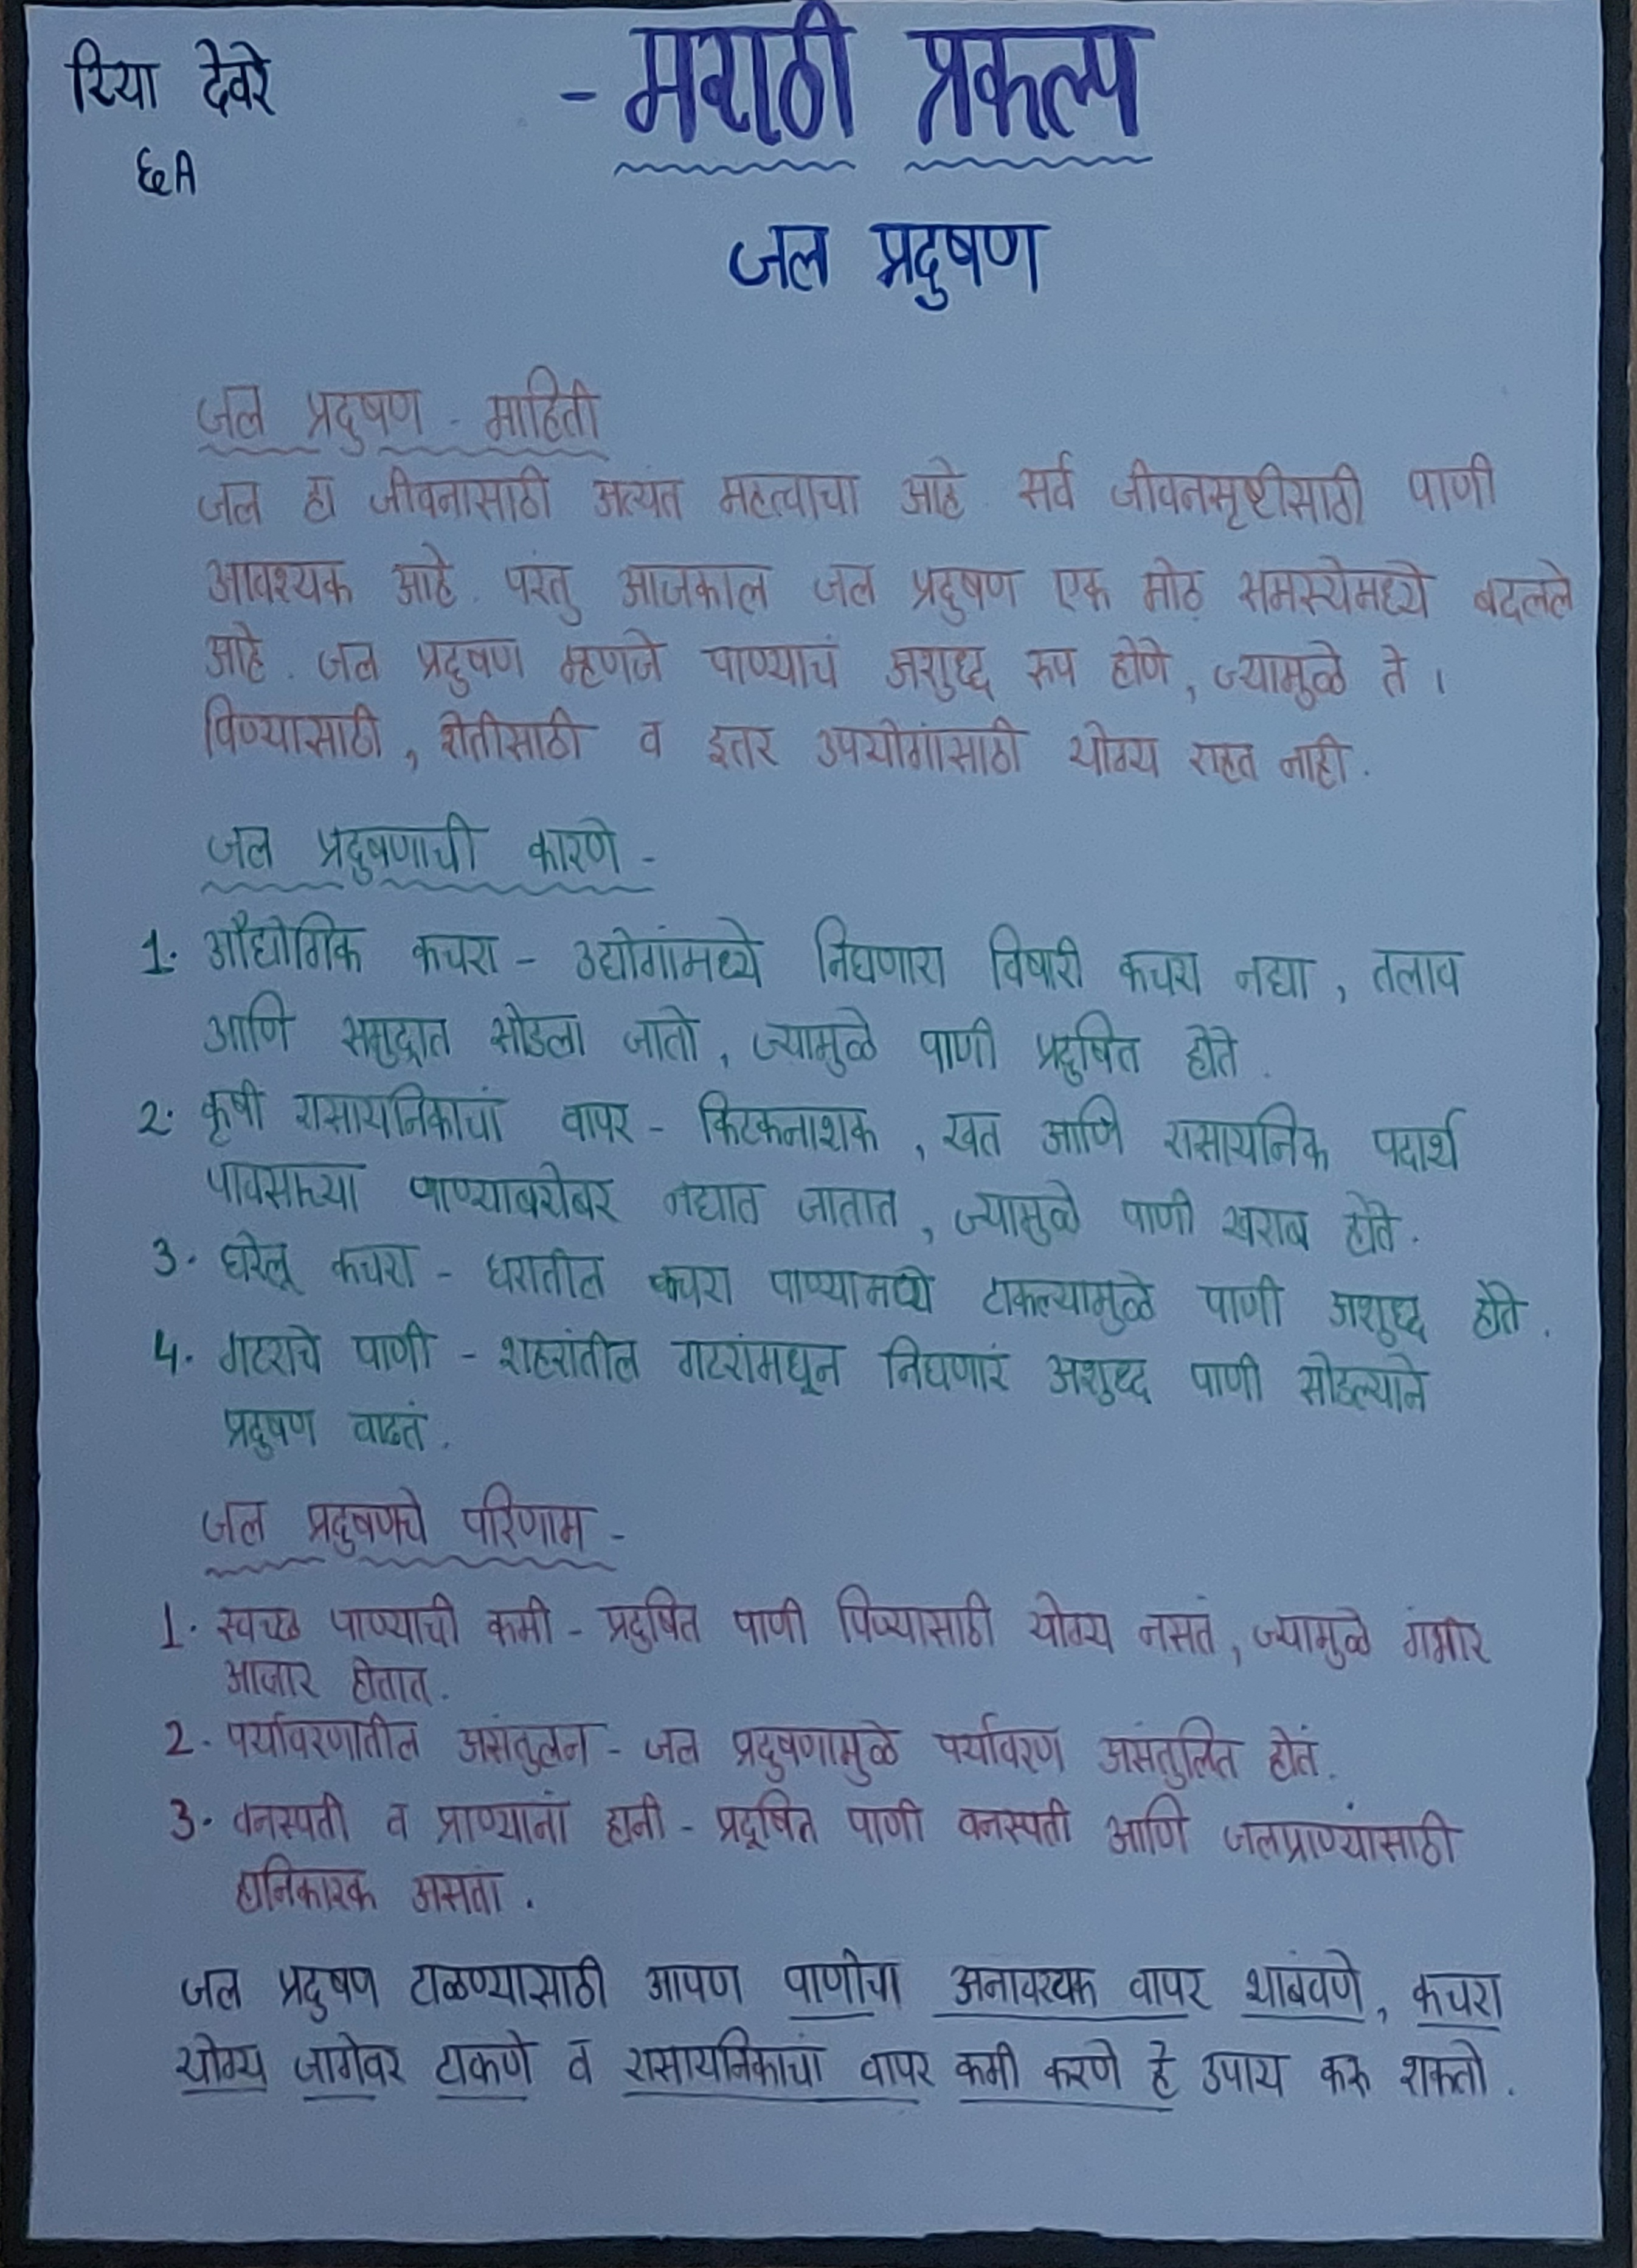 रिया देवरे
६A
- मराठी प्रकल्प
जल प्रदुषण
जल प्रदुषण - माहिती
जल हा जीवनासाठी अत्यंत महत्वाचा आहे. सर्व जीवनसृष्टीसाठी पाणी
आवश्यक आहे. परंतु आजकाल जल प्रदुषण एक मोठ समस्येमध्ये बदलले
आहे. जल प्रदुषण म्हणजे पाण्याचं अशुद्ध रुप होणे, ज्यामुळे ते ।
पिण्यासाठी, शेतीसाठी व इतर उपयोगांसाठी योग्य राहत नाही.
जल प्रदुषणाची कारणे -
1. औद्योगिक कचरा - उद्योगांमध्ये निघणारा विषारी कचरा नद्या, तलाव
आणि समुद्रात सोडला जातो, ज्यामुळे पाणी प्रदुषित होते.
2. कृषी रासायनिकाचां वापर - किटकनाशक, खत आणि रासायनिक पदार्थ
पावसाच्या पाण्याबरोबर नद्यात जातात, ज्यामुळे पाणी खराब होते.
3. घरेलू कचरा - घरातील कचरा पाण्यामध्ये टाकल्यामुळे पाणी अशुद्ध होते.
4. गटराचे पाणी - शहरांतील गटरांमधून निघणारं अशुद्ध पाणी सोडल्याने
प्रदुषण वाढतं.
जल प्रदुषणचे परिणाम -
1. स्वच्छ पाण्याची कमी - प्रदुषित पाणी पिण्यासाठी योग्य नसतं, ज्यामुळे गंभीर
आजार होतात.
2. पर्यावरणातील असंतुलन - जल प्रदुषणामुळे पर्यावरण असंतुलित होतं.
3. वनस्पती व प्राण्यानां हानी - प्रदूषित पाणी वनस्पती आणि जलप्राण्यांसाठी
हानिकारक असतां.
जल प्रदुषण टाळण्यासाठी आपण पाणीचा अनावश्यक वापर थाबंवणे, कचरा
योग्य जागेवर टाकणे व रासायनिकाचां वापर कमी करणे हे उपाय करु शकतो.